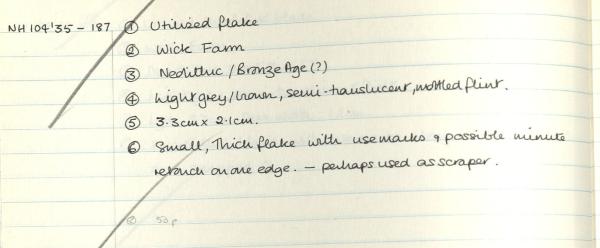 NH 104'35 - 187 ① Utilized flake
② Wick Farm
③ Neolithic / Bronze Age (?)
④ Light grey/brown, semi-translucent, mottled flint.
⑤ 3.3cm x 2.1cm.
⑥ Small, thick flake with use marks & possible minute
retouch on one edge. – perhaps used as scraper.
50p